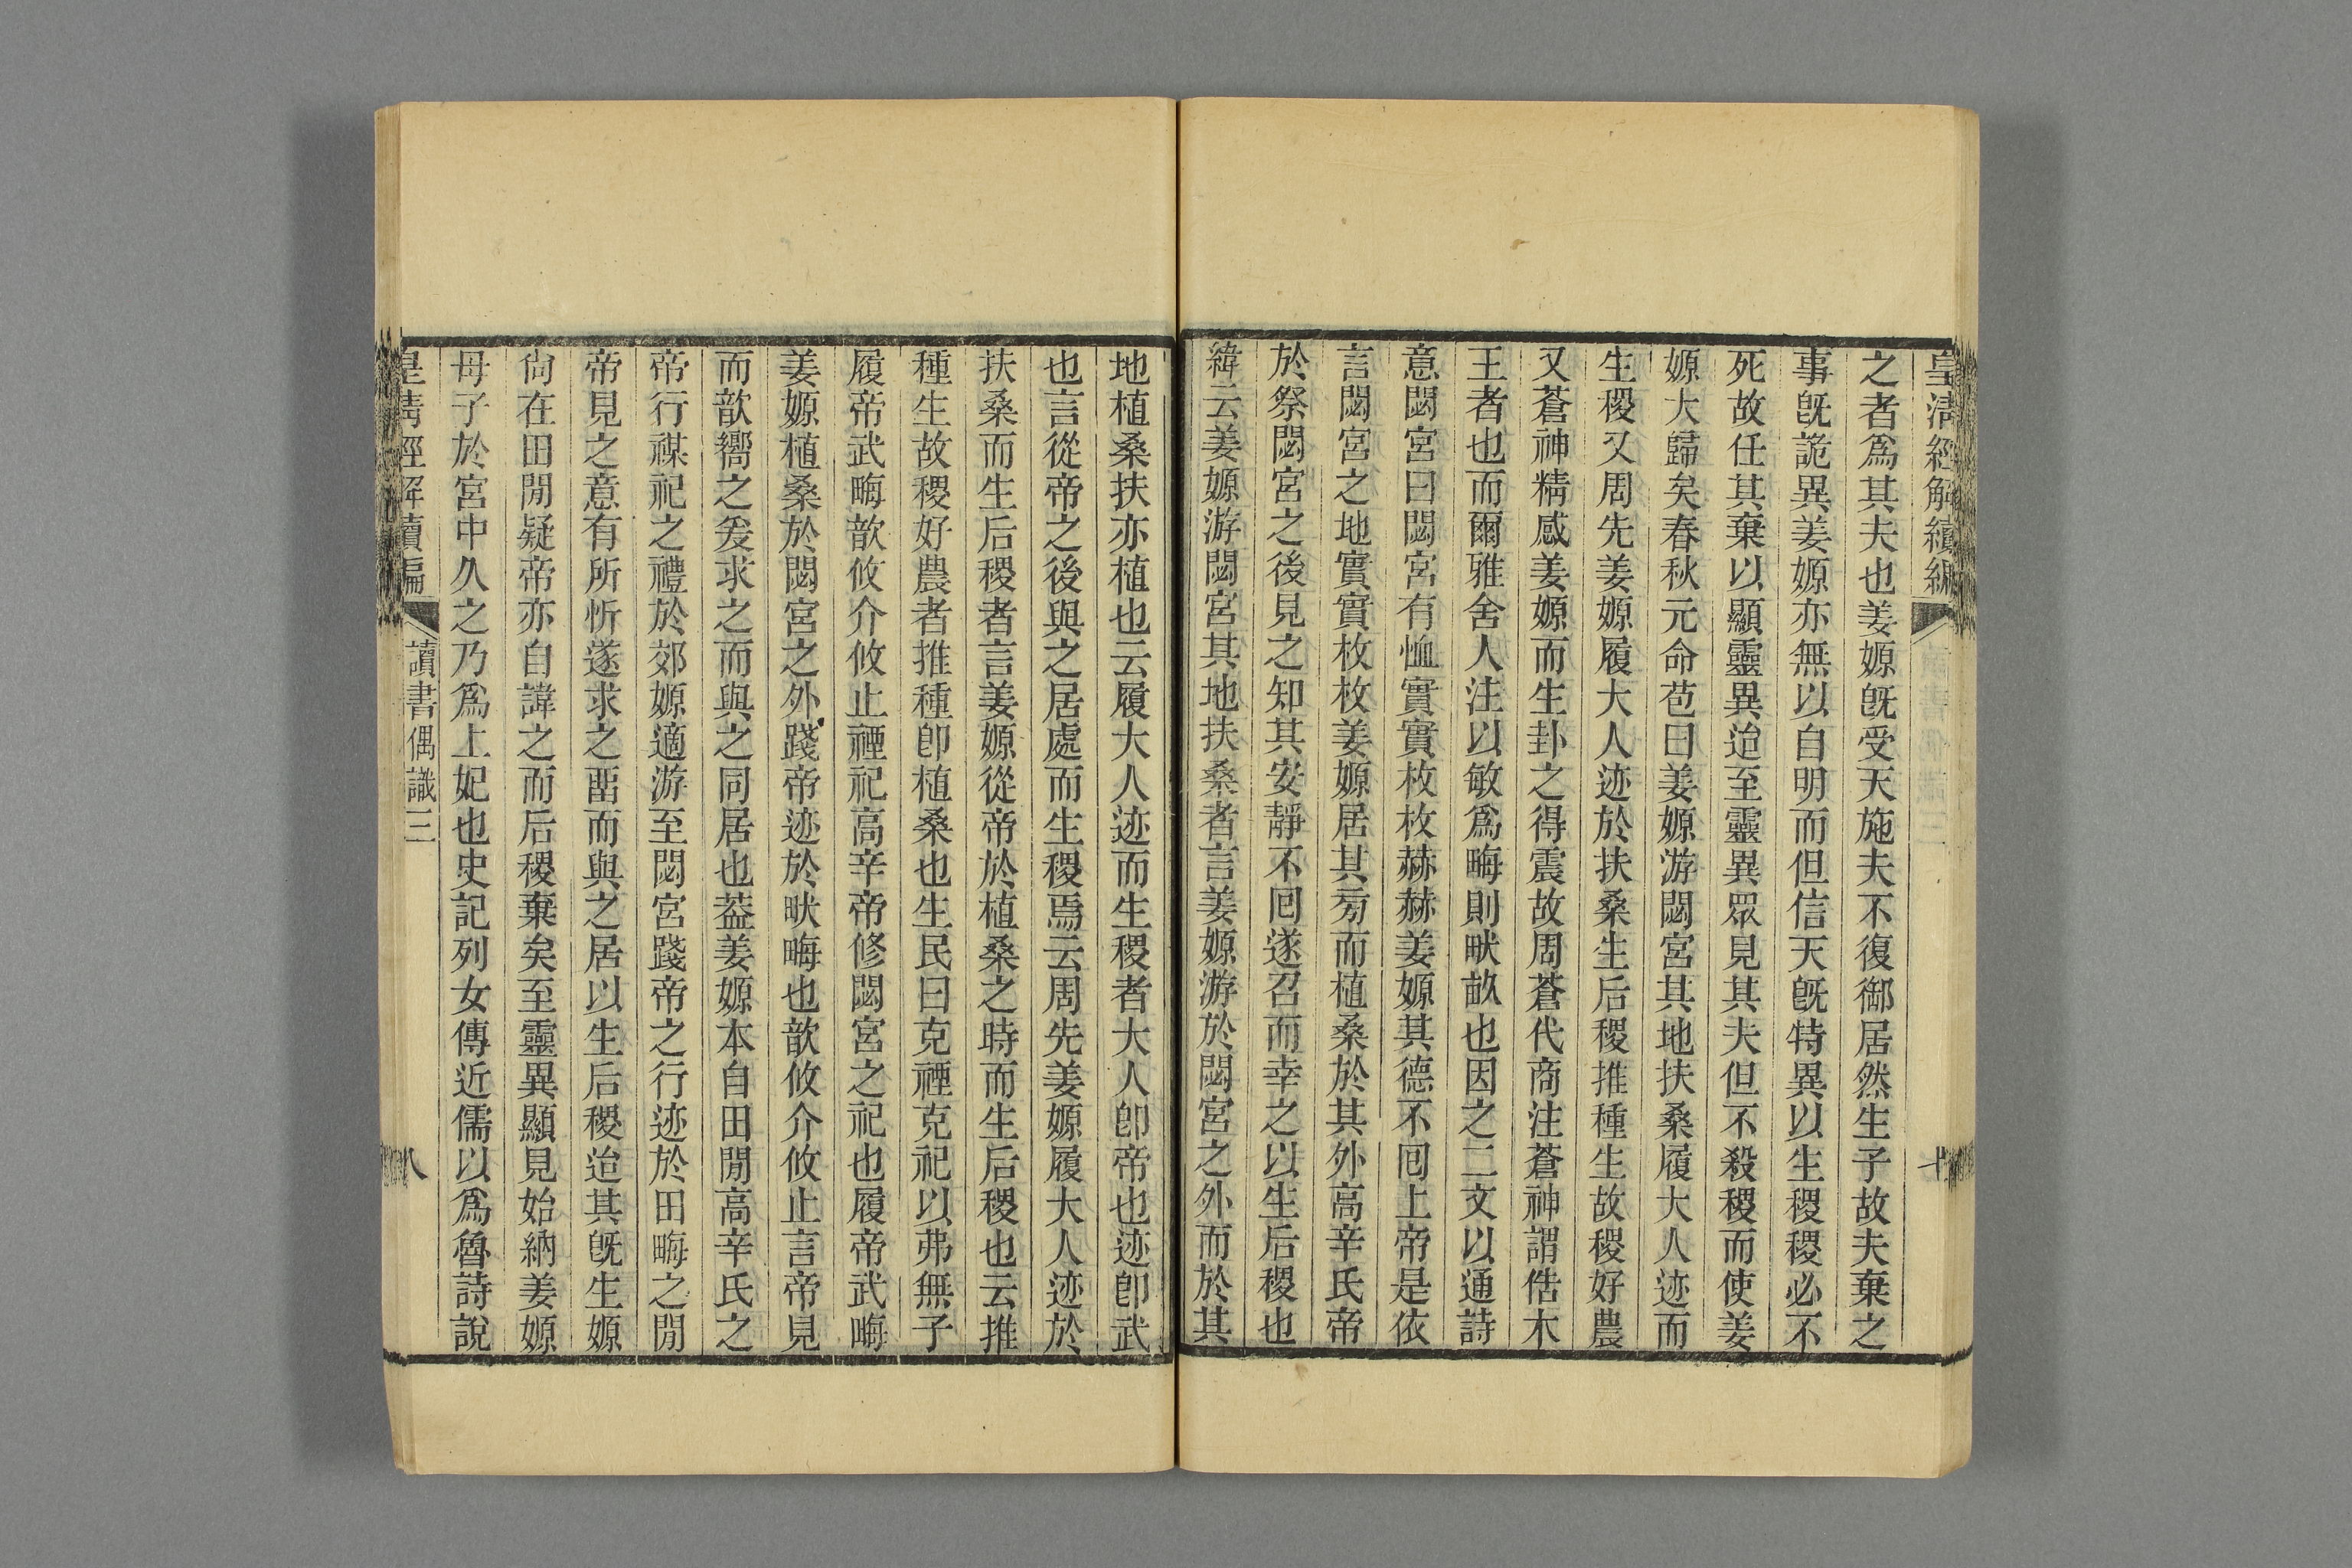 皇清經解續編
七
之者爲其夫也姜嫄旣受天施夫不復御居然生子故夫棄之
事旣詭異姜嫄亦無以自明而但信天旣特異以生稷稷必不
死故任其棄以顯靈異迨至靈異眾見其夫但不殺稷而使姜
嫄大歸矣春秋元命苞曰姜嫄游閟宮其地扶桑履大人迹而
生稷又周先姜嫄履大人迹於扶桑生后稷推種生故稷好農
又蒼神精感姜嫄而生卦之得震故周蒼代商注蒼神謂俈木
王者也而爾雅舍人注以敏爲畮則畎畝也因之二文以通詩
意閟宮曰閟宮有恤實實枚枚赫赫姜嫄其德不回上帝是依
言閟宮之地實實枚枚姜嫄居其旁而植桑於其外高辛氏帝
於祭閟宮之後見之知其安靜不回遂召而幸之以生后稷也
緯云姜嫄游閟宮其地扶桑者言姜嫄游於閟宮之外而於其
地植桑扶亦植也云履大人迹而生稷者大人卽帝也迹卽武
也言從帝之後與之居處而生稷焉云周先姜嫄履大人迹於
扶桑而生后稷者言姜嫄從帝於植桑之時而生后稷也云推
種生故稷好農者推種卽植桑也生民曰克禋克祀以弗無子
履帝武畮歆攸介攸止禋祀高辛帝修閟宮之祀也履帝武畮
姜嫄植桑於閟宮之外踐帝迹於畎畮也歆攸介攸止言帝見
而歆嚮之爰求之而與之同居也葢姜嫄本自田閒高辛氏之
帝行禖祀之禮於郊嫄適游至閟宮踐帝之行迹於田畮之閒
帝見之意有所忻遂求之畱而與之居以生后稷迨其旣生嫄
尙在田閒疑帝亦自諱之而后稷棄矣至靈異顯見始納姜嫄
母子於宮中久之乃爲上妃也史記列女傳近儒以爲魯詩說
皇清經解續編
讀書偶識三
八